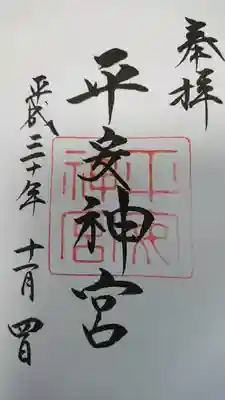 奉拝
平安神宮
平成三十年 十一月 四日
平安神宮